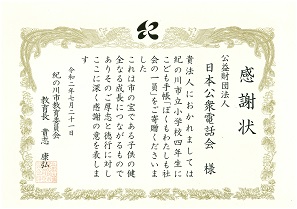 感謝状
公益財団法人
日本公衆電話会 様
貴法人におかれましては
紀の川市立小学校四年生に
こども手帳「ぼくもわたしも社
会の一員」をご寄贈くださいま
した
これは市の宝である子供の健
全なる成長につながるもので
ありそのご厚志と徳行に対し
ここに深く感謝の意を表します
令和二年七月二十一日
紀の川市教育委員会
教育長 貴志 康弘